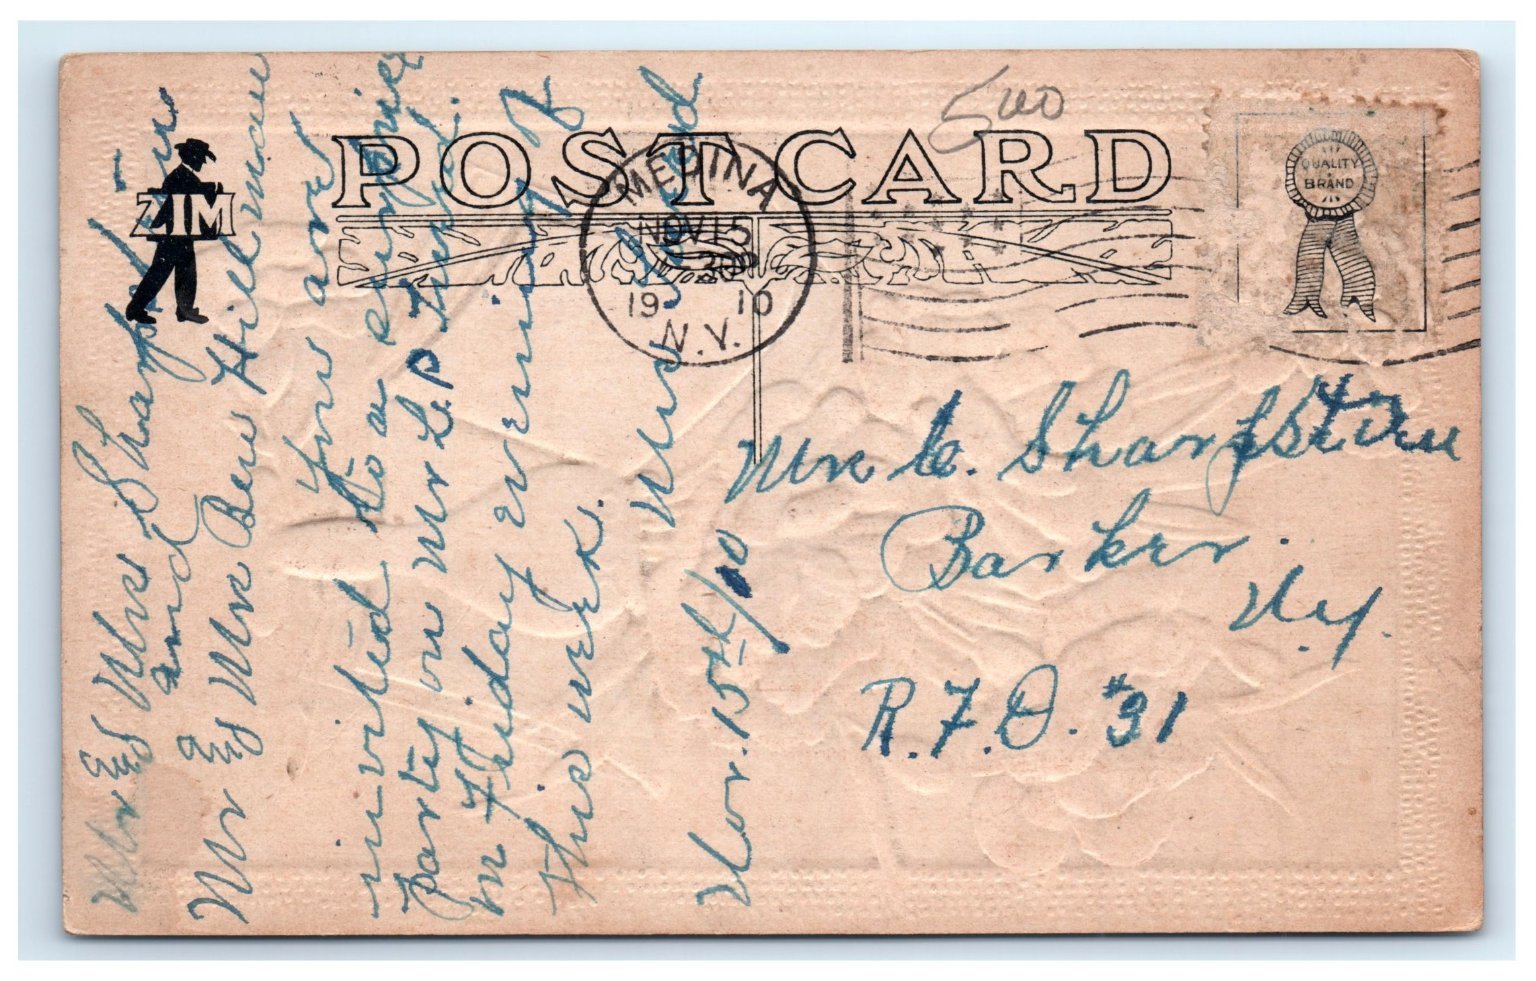 POST CARD
ZIM
5 00
MEDINA
NOV 15
30 P
19 10
N.Y.
QUALITY
BRAND
Mr & Mrs Sharpstein
and
Mr & Mrs Ben Hillman
You are
invited to a surprise
Party on Mr L. P.
on Friday evening of
this week.
Mrs
Nov. 15th/10
Mr C. Sharpstein
Barker.
N.Y.
R.F.D. #31